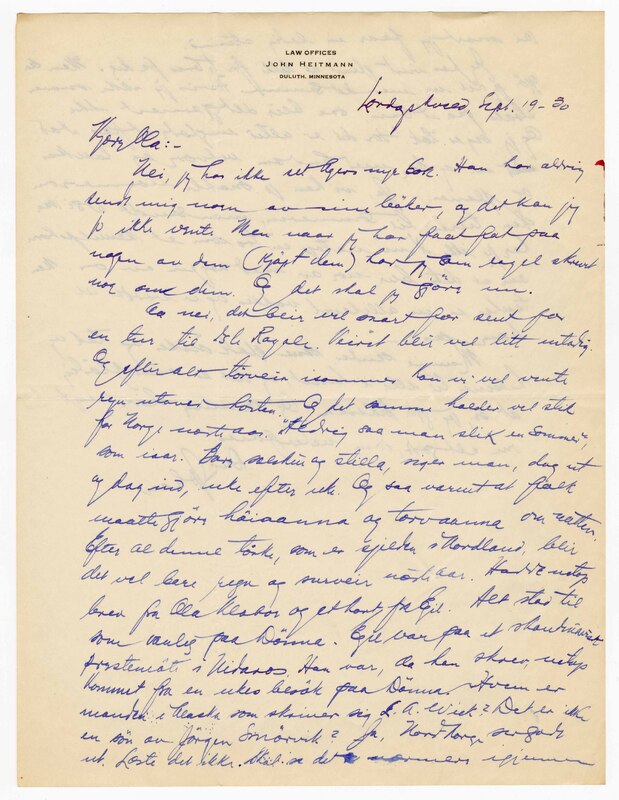 LAW OFFICES
JOHN HEITMANN
DULUTH, MINNESOTA
Lördagskveld, Sept. 19-30
Kjære Ola:-
Nei, jeg har ikke set Kjers nye bok. Han har aldrig
sendt mig noen av sine bøker, og det kan jeg
jo ikke vente. Men naar jeg har faat fat paa
nogen av dem (kjøpt dem) har jeg som regel skrevet
noe om dem. Og det skal jeg gjöre nu.
Aa nei, det blir vel snart for sent for
en tur til Isle Royale. Veiret blir vel litt ustadig.
Og efter alt törveir isommer kan vi vel vente
regn utover hösten. Og det samme holder vel stik
for Norge nord i aar. "Aldrig saa man slik en sommer",
som iaar. Bare solskin og stilla, siger man, dag ut
og dag ind, uke efter uke. Og saa varmt at folk
maatte gjöre höiaanna og torvaanna om natten.
Efter al denne törke, som er sjelden i Nordland, blir
det vel bare regn og surveir nord i aar. Hadde netop
brev fra Ola og et kort fra Egil. Alt stod til
som vanlig paa Dönna. Egil var paa et skandinavisk
prestemöte i Nidaros. Han var, da han skrev, netop
kommet fra en ukes besök paa Dönna. Hvem er
manden i Alaska som skriver sig J. A. Wick? Det er ikke
en sön av Jörgen Smörvik? Ja, Nord Norge ser godt
ut. Læste det ikke. Skal se det nærmere igjennem